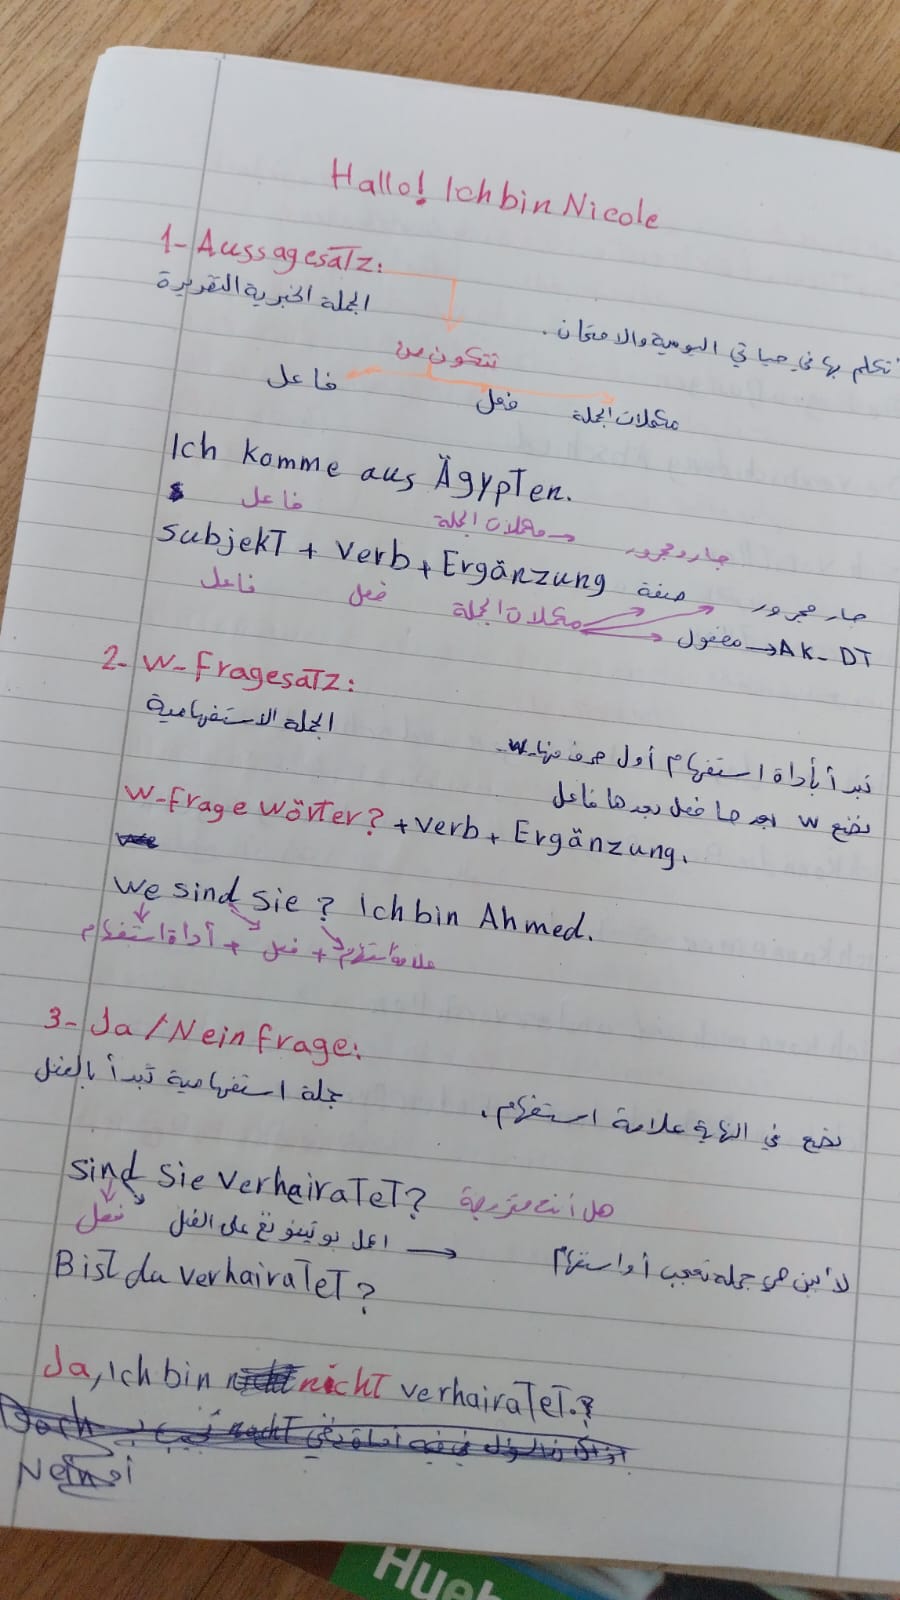 Hallo! Ich bin Nicole
1- Aussagesatz:
الجملة الخبرية التقريرة
نتكلم بها في حياتي اليومية والامتحان.
تتكون من
فاعل
فعل
مكملات الجملة
Ich komme aus Ägypten.
فاعل
مكملات الجملة
جار ومجرور
Subjekt + Verb + Ergänzung
صفة
جار مجرور
فاعل
فعل
مكملات الجملة
مفعول → AK- DT
2- W-Fragesatz:
الجملة الاستفهامية
تبدأ بأداة استفهام أول حرف منها W-
نضع W بعدها فعل بعدها فاعل
W-Frage Wörter? + Verb + Ergänzung.
We sind Sie? Ich bin Ahmed.
أداة استفهام + فعل + علامة استفهام
3- Ja / Nein frage:
جملة استفهامية تبدأ بالفعل
نضع في النهاية علامة استفهام.
Sind Sie verhairatet? هل أنت متزوجة
فعل
اعمل على الفعل →
لأن هي جملة تعجب أو استفهام
Bist da verhairatet?
Ja, Ich bin nicht verhairatet.
Doch nacht
Nein